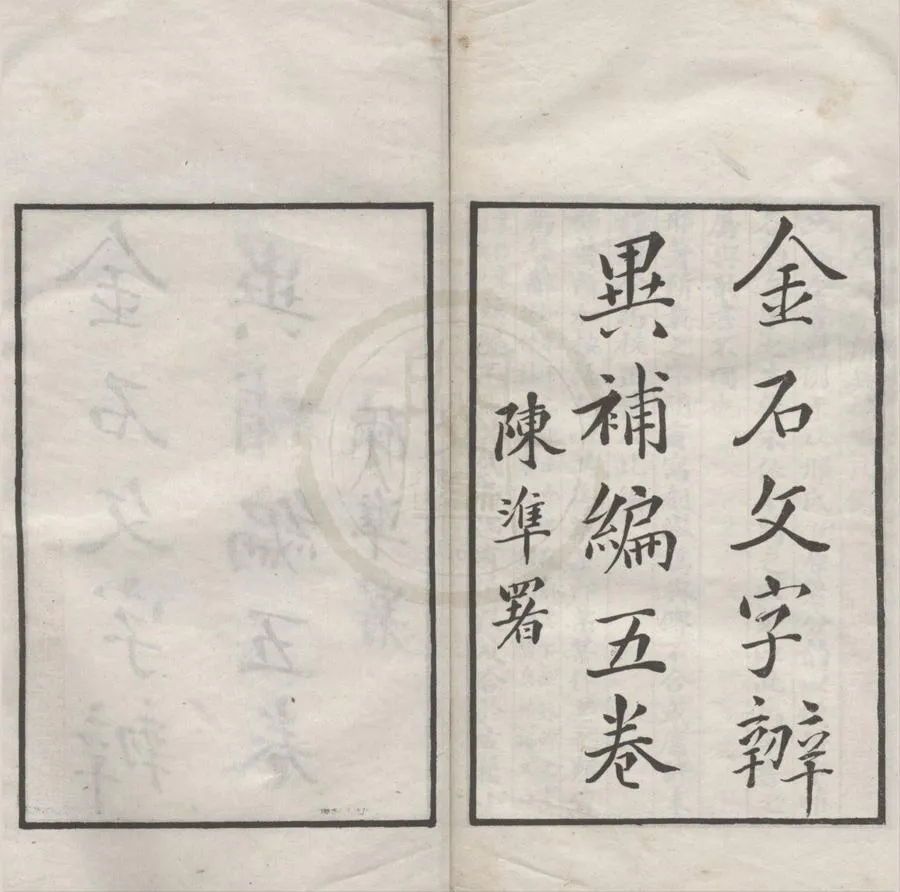 金石文字辧
異補編五卷
陳準署